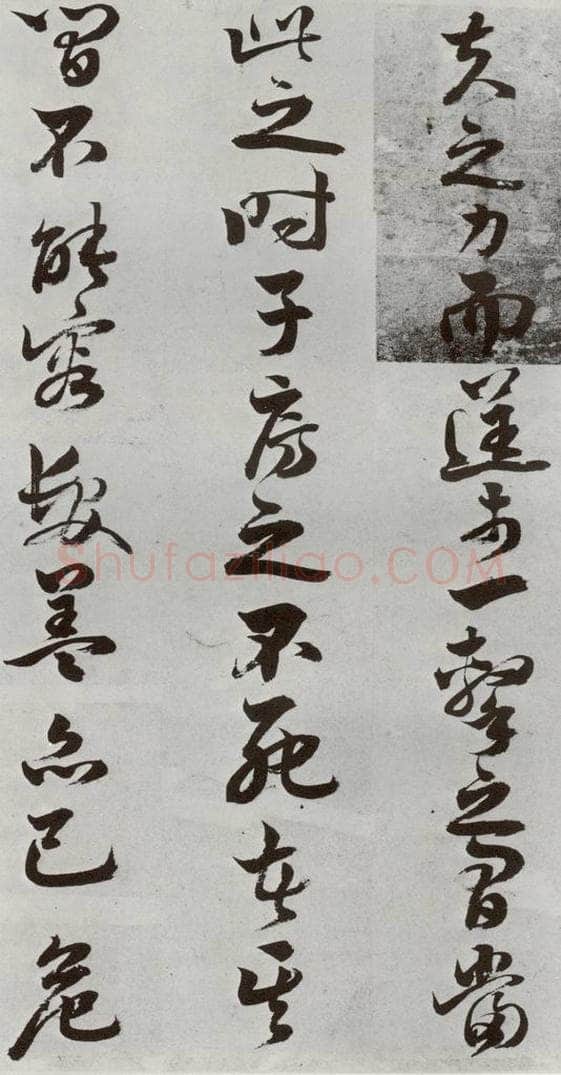 夫之力而逞於一擊之間當
此之時子房之不死者其
間不能容髮蓋亦已危
Shufaziliao.COM